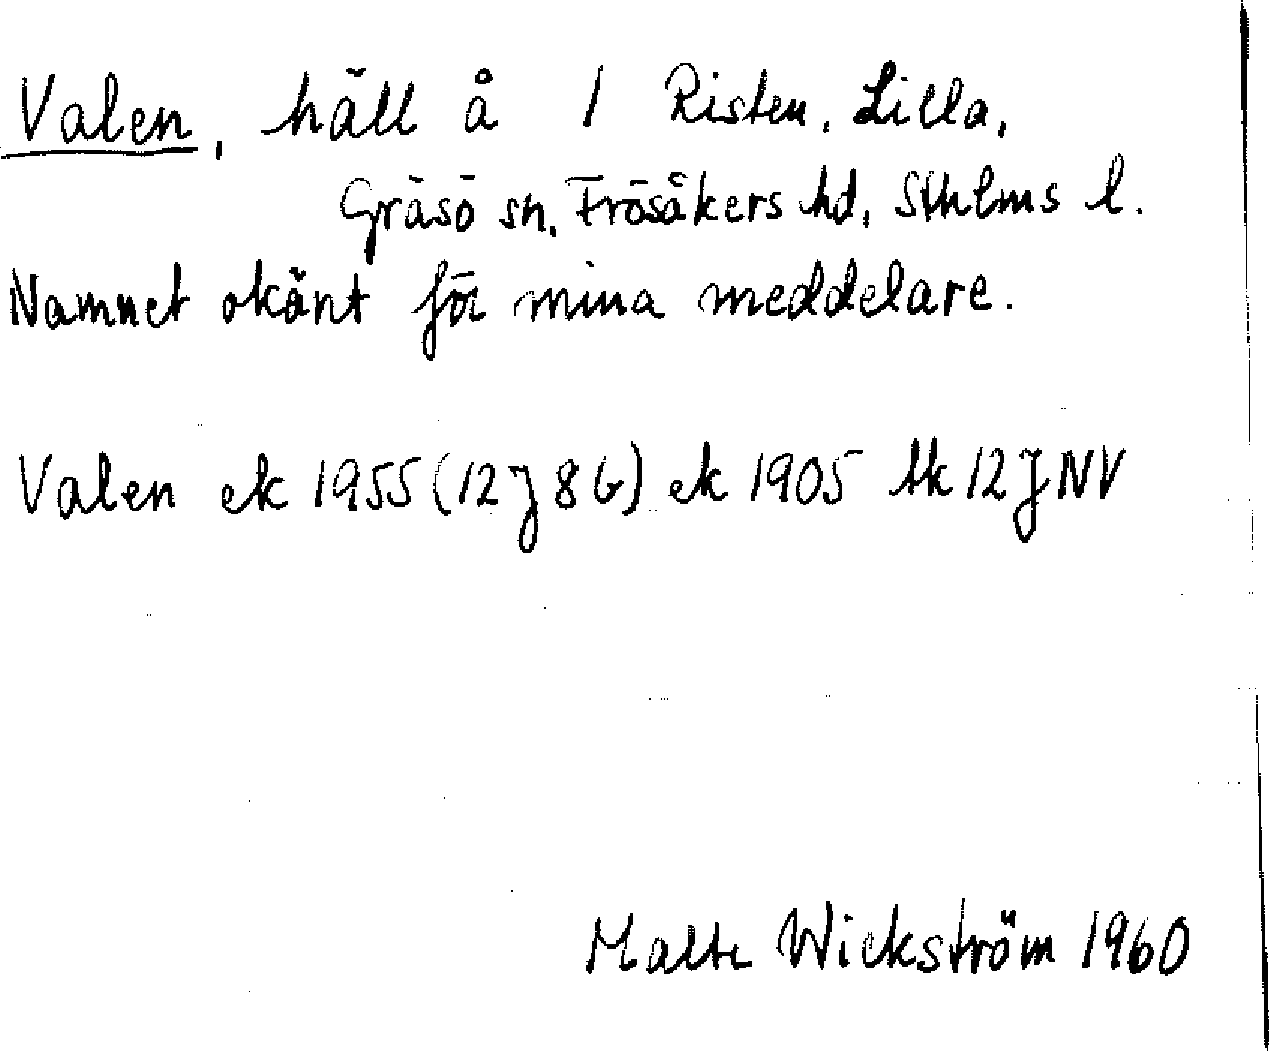 Valen, häll å 1 Risten, Lilla,
Gräsö sn, Frösåkers hd, Sthlms l.
Namnet okänt för mina meddelare.
Valen ek 1955 (12 J 8 b) ek 1905 bk 12 J NV
Malte Wickström 1960